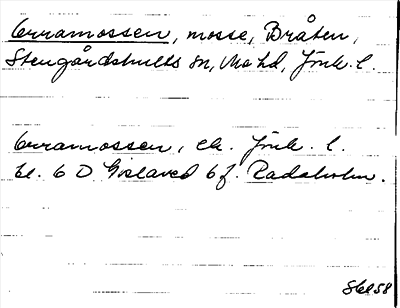 Orramossen, mosse, Bråten,
Stengårdshults sn, Mo hd, Jönk. l.
Orramossen, ek. Jönk. l.
bl. 6 D Gislaved 6 f. Radaholm.
1958